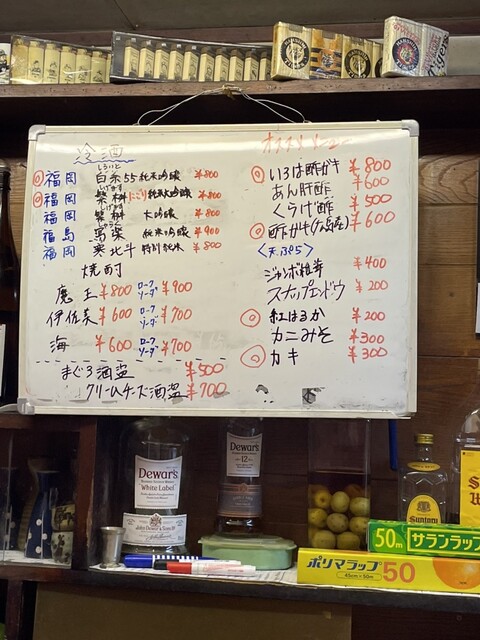 冷酒
しらいと
福岡 白糸55純米吟醸 ¥800
しげます
福岡 繁桝にごり純米大吟醸 ¥800
しげます
福岡 繁桝 大吟醸 ¥800
福島 写楽 純米吟醸 ¥900
福岡 寒北斗 特別純米 ¥800
焼酎
魔王 ¥800 ロック ソーダ ¥900
伊佐美 ¥600 ロック ソーダ ¥700
海 ¥600 ロック ソーダ ¥700
まぐろ酒盗 ¥500
クリームチーズ酒盗 ¥700
オススメメニュー
いろは酢がき ¥800
あん肝酢 ¥600
くらげ酢 ¥500
酢がき ¥600
<天ぷら>
¥400
スナップエンドウ ¥200
紅はるか ¥200
カニみそ ¥300
カキ ¥300
Dewar's
White Label
John Dewar & Sons
Dewar's
12
SUNTORY
50m サランラップ
ポリマラップ 50
45cm×50m